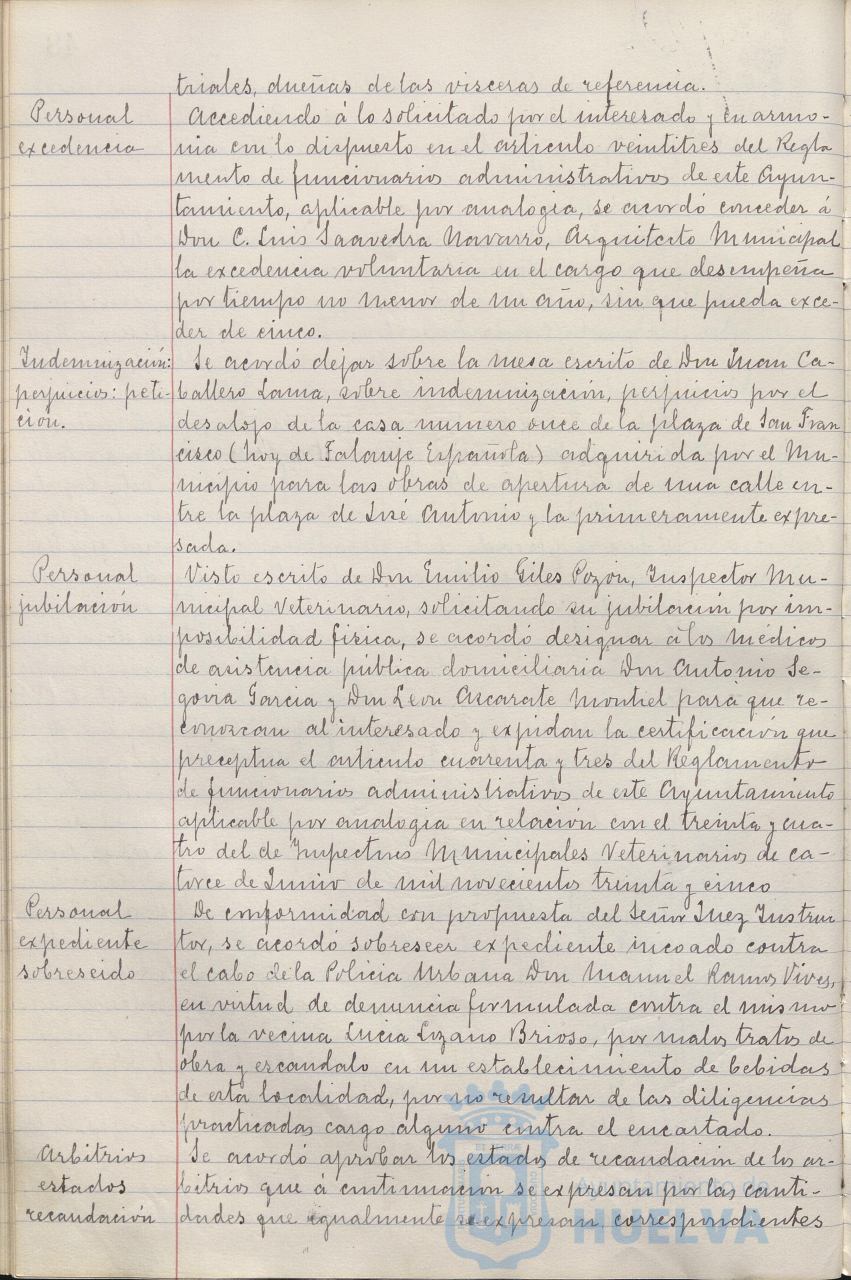 triales, dueñas de las visceras de referencia.
Personal
excedencia
Accediendo á lo solicitado por el interesado y en armo-
nia con lo dispuesto en el articulo veintitres del Regla
mento de funcionarios administrativos de este Ayun-
tamiento, aplicable por analogia, se acordó conceder á
Don C. Luis Saavedra Navarro, Arquitecto Municipal
la excedencia voluntaria en el cargo que desempeña
por tiempo no menor de un año, sin que pueda exce-
der de cinco.
Indemnización:
perjuicios: peti-
ción.
Se acordó dejar sobre la mesa escrito de Don Juan Ca-
ballero Lama, sobre indemnización, perjuicios por el
desalojo de la casa numero once de la plaza de San Fran
cisco (hoy de Falanje Española) adquirida por el Mu-
nicipio para las obras de apertura de una calle en-
tre la plaza de José Antonio y la primeramente expre-
sada.
Personal
jubilación
Visto escrito de Don Emilio Giles Pozón, Inspector Mu-
nicipal Veterinario, solicitando su jubilación por im-
posibilidad fisica, se acordó designar á los médicos
de asistencia pública domiciliaria Don Antonio Se-
govia Garcia y Don Leon Ascarate Montiel para que re-
conozcan al interesado y expidan la certificación que
preceptua el articulo cuarenta y tres del Reglamento
de funcionarios administrativos de este Ayuntamiento
aplicable por analogia en relación con el treinta y cua-
tro del de Inspectores Municipales Veterinarios de ca-
torce de Junio de mil novecientos treinta y cinco
Personal
expediente
sobreseido
De conformidad con propuesta del Señor Juez Instruc
tor, se acordó sobreseer expediente incoado contra
el cabo de la Policia Urbana Don Manuel Ramos Vives,
en virtud de denuncia formulada contra el mismo
por la vecina Lucia Lozano Brioso, por malos tratos de
obra y escandalo en un establecimiento de bebidas
de esta localidad, por no resultar de las diligencias
practicadas cargo alguno contra el encartado.
Arbitrios
estados
recaudación
Se acordó aprobar los estados de recaudación de los ar-
bitrios que á continuación se expresan por las canti-
dades que igualmente se expresan, correspondientes
Ayuntamiento de
HUELVA